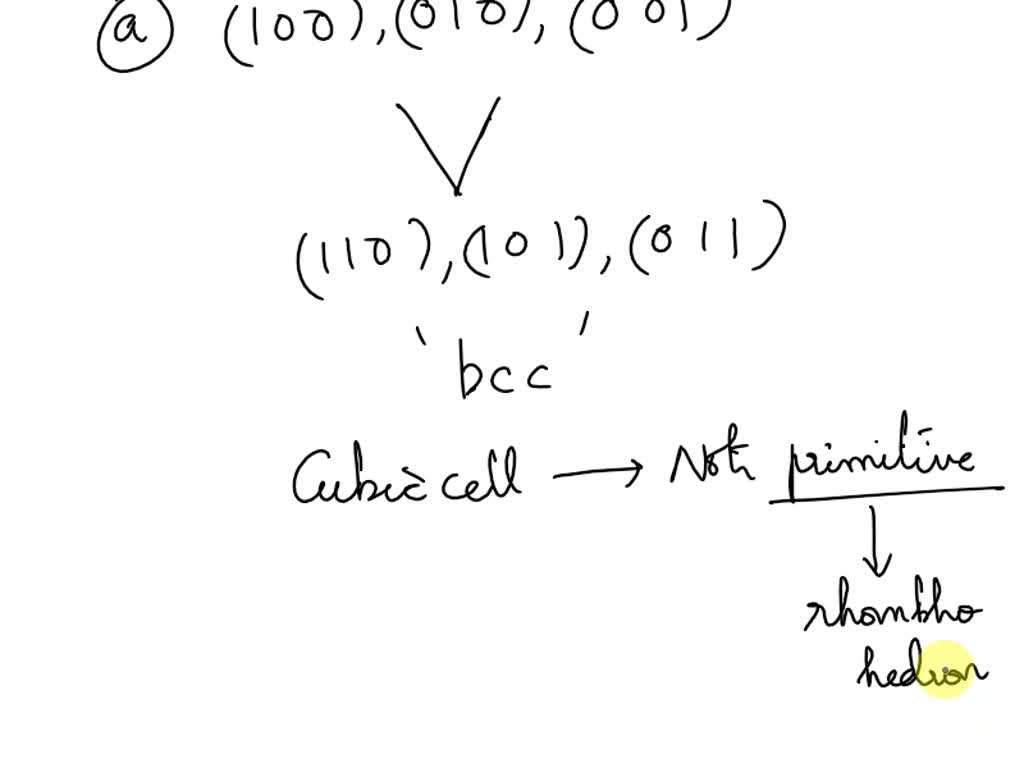 (a) (100), (010), (001)
(110), (101), (011)
'bcc'
Cubic cell → Not primitive
rhombho
hedron